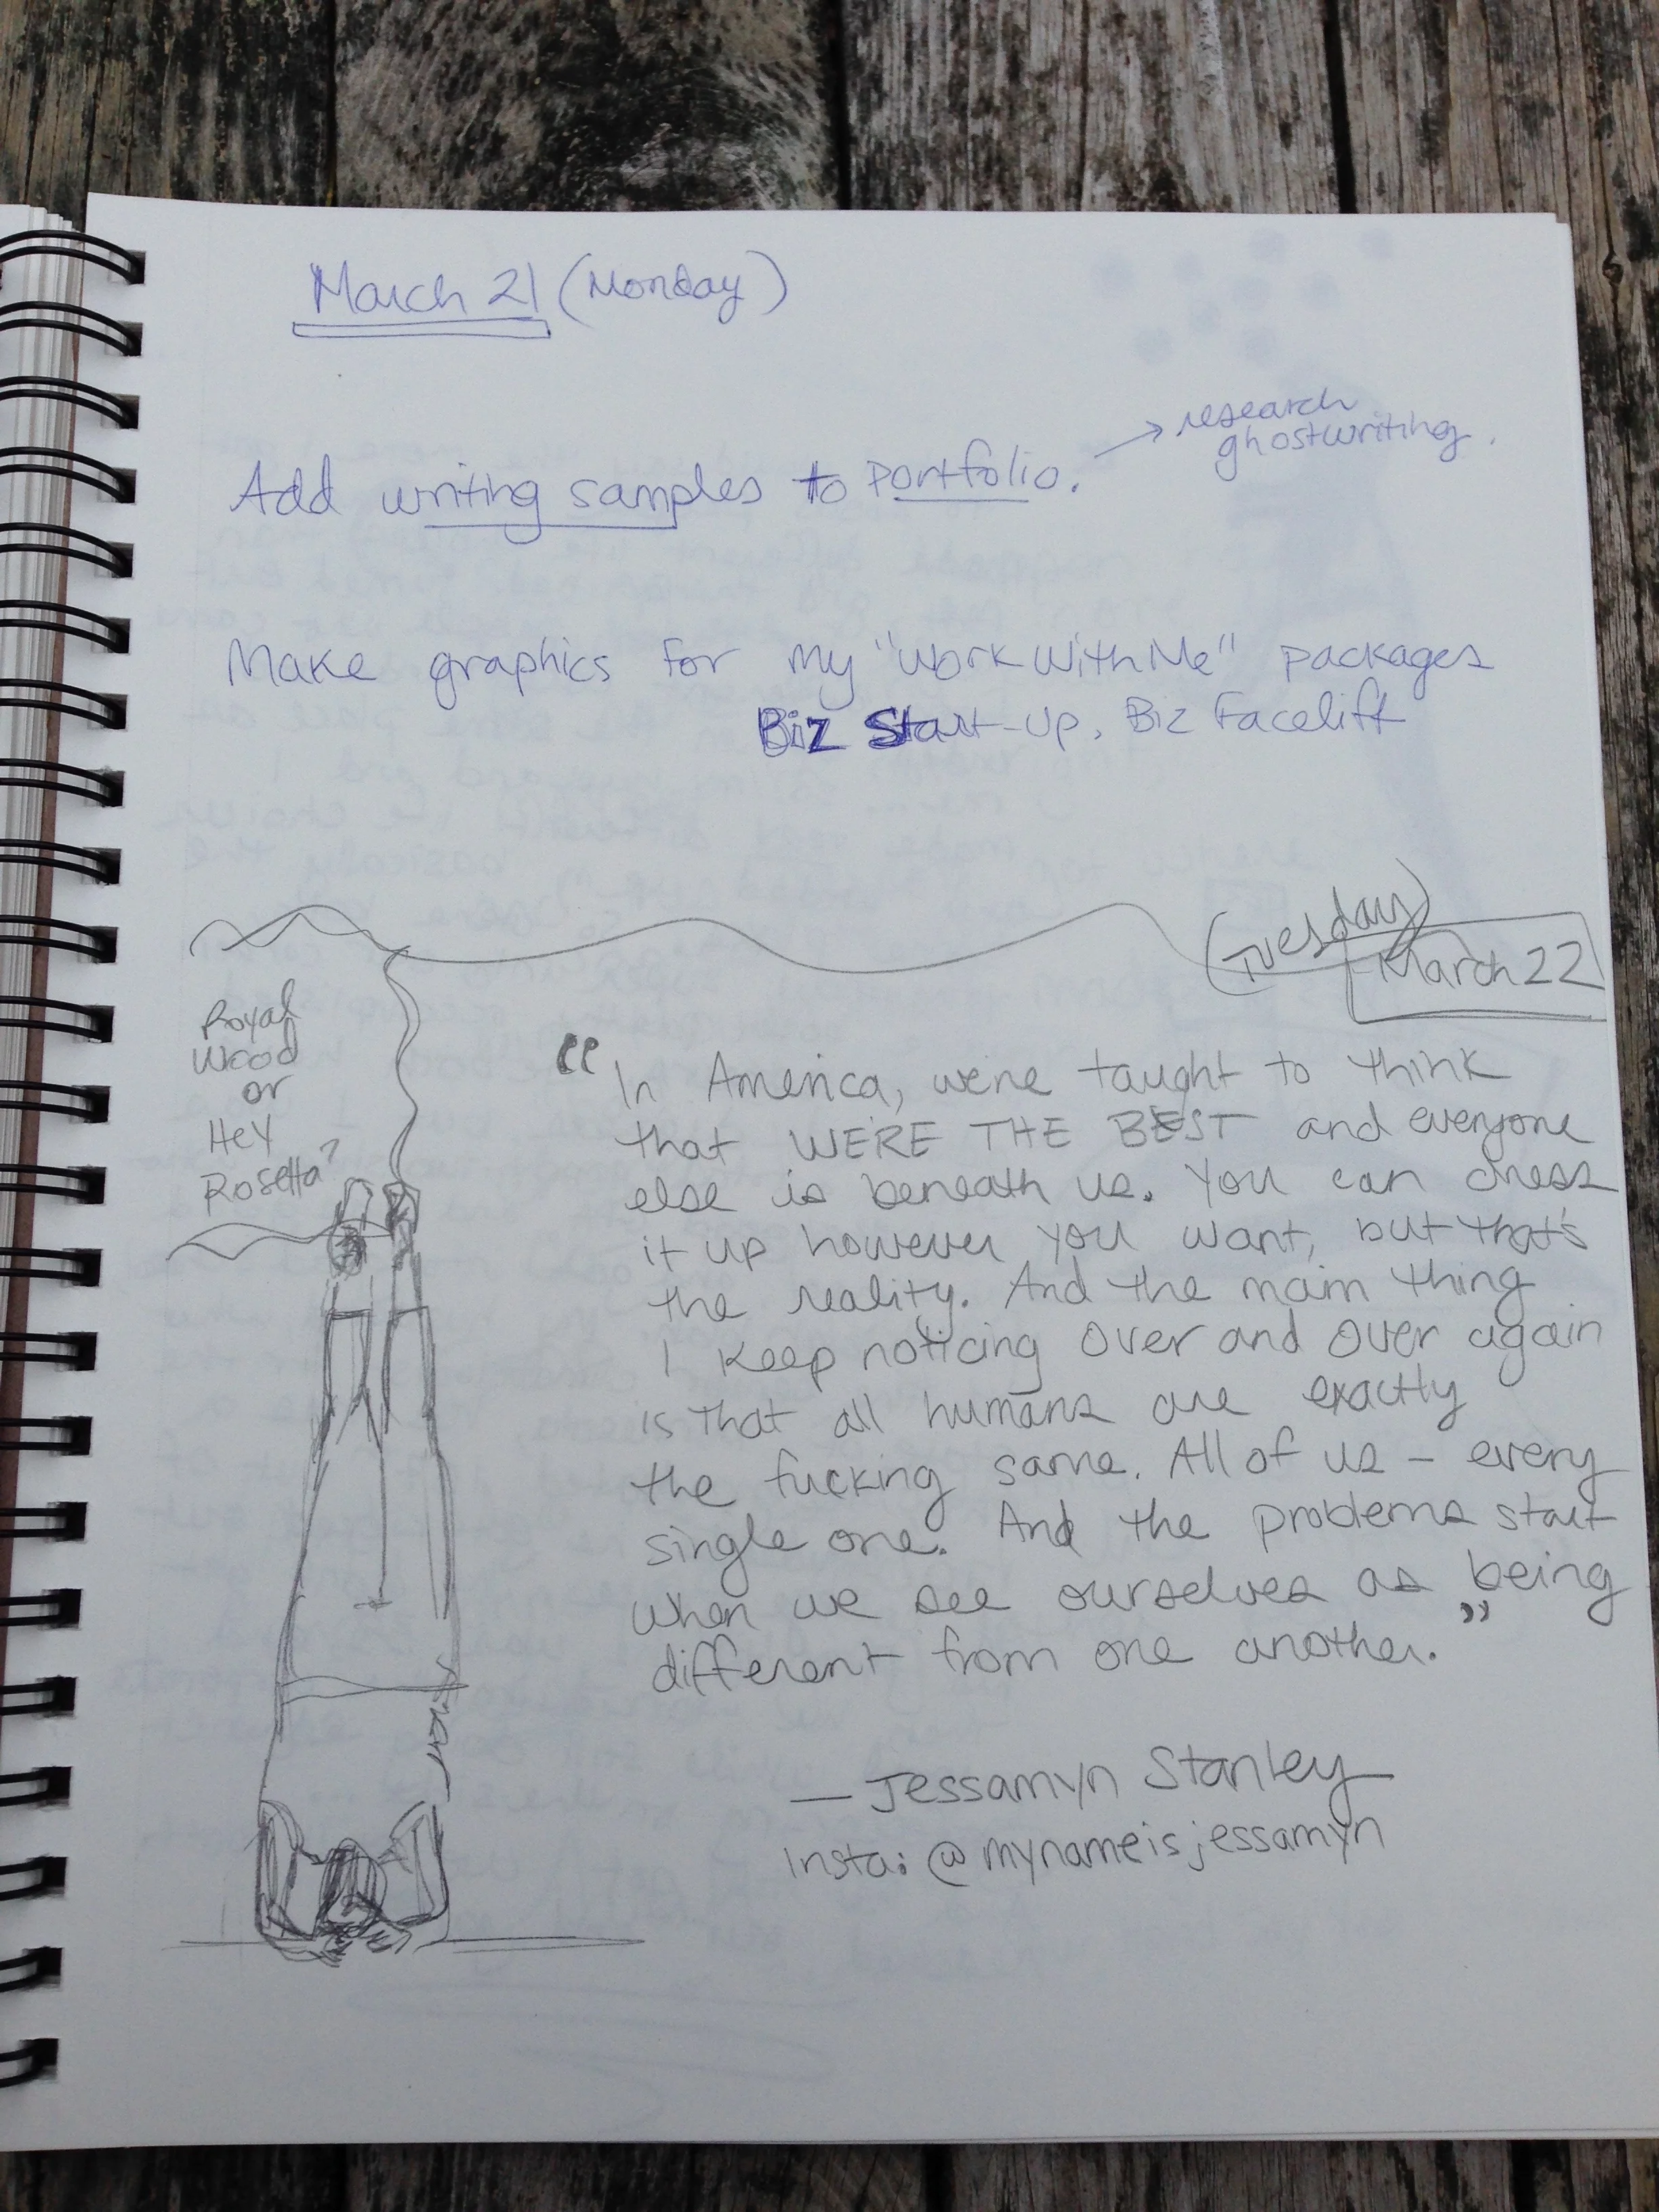 March 21 (Monday)
Add writing samples to Portfolio. → research
ghostwriting.
Make graphics for my "Work With Me" packages
Biz Start-up, Biz Facelift
(Tuesday)
March 22
Royal
Wood
or
Hey
Rosetta?
"In America, we're taught to think
that WE'RE THE BEST and everyone
else is beneath us. You can dress
it up however you want, but that's
the reality. And the main thing
I keep noticing over and over again
is that all humans are exactly
the fucking same. All of us - every
single one. And the problems start
when we see ourselves as being
different from one another."
— Jessamyn Stanley
Insta: @mynameisjessamyn